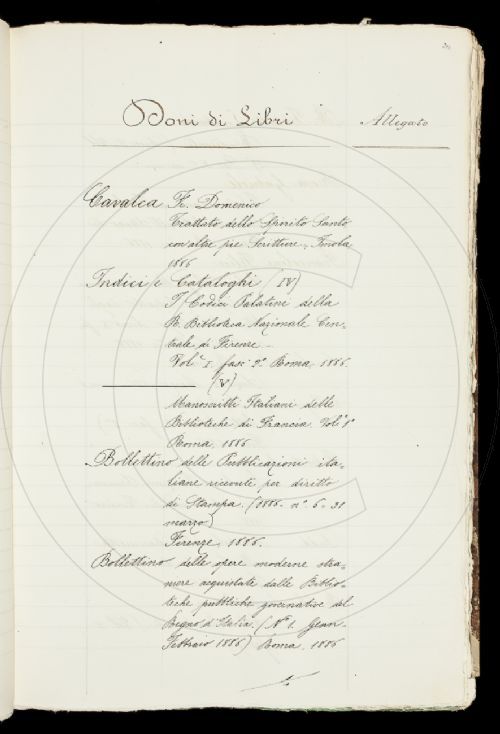 Doni di Libri Allegato
Cavalca F. Domenico
Trattato dello Spirito Santo
con altre pie Scritture, Imola
1886
Indici e Cataloghi (IV)
I Codici Palatini della
R. Biblioteca Nazionale Cen-
trale di Firenze -
Vol. I. fasc. 2º Roma. 1886.
(V)
Manoscritti Italiani delle
Biblioteche di Francia. Vol. 1º
Roma. 1886
Bollettino delle Pubblicazioni ita-
liane ricevute per diritto
di Stampa. (1886. nº 6. 31
marzo)
Firenze. 1886.
Bollettino delle opere moderne stra-
niere acquistate dalle Biblio-
teche pubbliche governative del
Regno d'Italia. (Nº 1. Genn.
Febbraio 1886) Roma. 1886